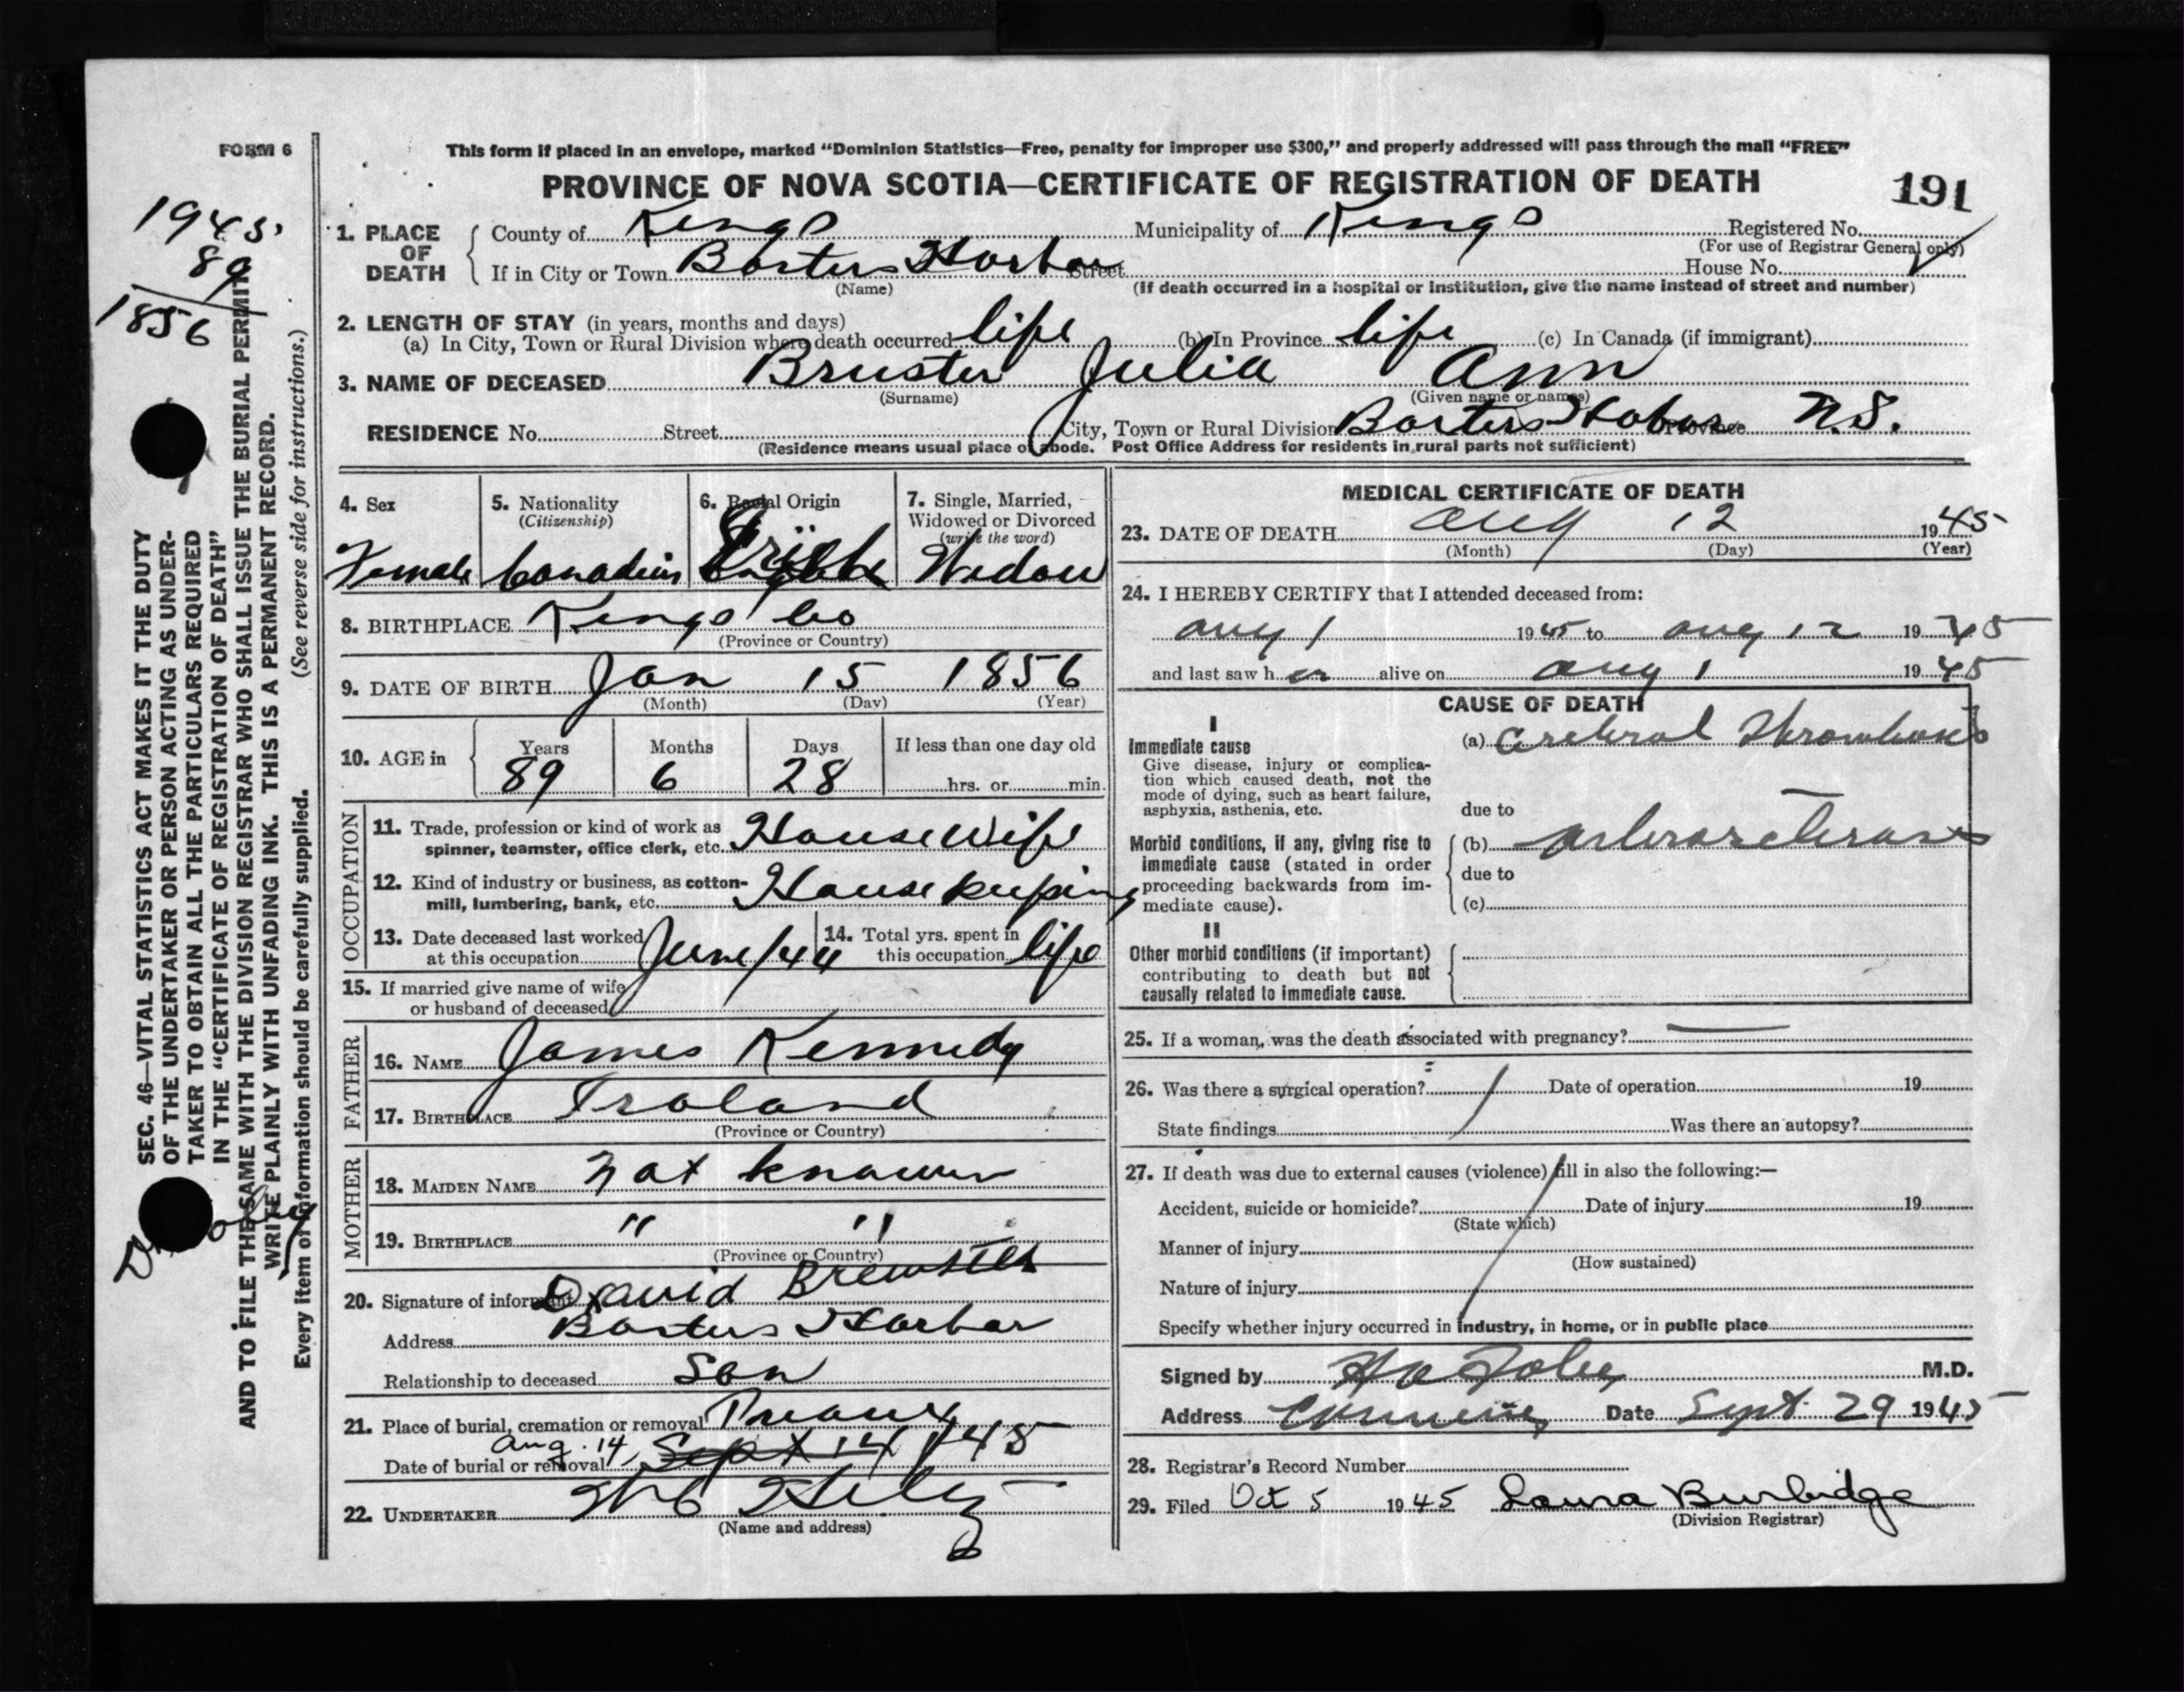 FORM 6
This form if placed in an envelope, marked “Dominion Statistics—Free, penalty for improper use $300,” and properly addressed will pass through the mail “FREE”
PROVINCE OF NOVA SCOTIA—CERTIFICATE OF REGISTRATION OF DEATH
191
1945.
89
1856
SEC. 46—VITAL STATISTICS ACT MAKES IT THE DUTY
OF THE UNDERTAKER OR PERSON ACTING AS UNDER-
TAKER TO OBTAIN ALL THE PARTICULARS REQUIRED
IN THE “CERTIFICATE OF REGISTRATION OF DEATH”
AND TO FILE THE SAME WITH THE DIVISION REGISTRAR WHO SHALL ISSUE THE BURIAL PERMIT.
WRITE PLAINLY WITH UNFADING INK. THIS IS A PERMANENT RECORD.
Every item of information should be carefully supplied. (See reverse side for instructions.)
1. PLACE OF DEATH
County of Kings Municipality of Kings Registered No.
(For use of Registrar General only)
If in City or Town Baxters Harbor Street House No.
(Name) (If death occurred in a hospital or institution, give the name instead of street and number)
2. LENGTH OF STAY (in years, months and days)
(a) In City, Town or Rural Division where death occurred life (b) In Province life (c) In Canada (if immigrant)
3. NAME OF DECEASED Bruster Julia Ann
(Surname) (Given name or names)
RESIDENCE No. Street City, Town or Rural Division Baxters Habor Province N.S.
(Residence means usual place of abode. Post Office Address for residents in rural parts not sufficient)
4. Sex Female
5. Nationality (Citizenship) Canadian
6. Racial Origin
7. Single, Married, Widowed or Divorced (write the word) Widow
8. BIRTHPLACE Kings Co
(Province or Country)
9. DATE OF BIRTH Jan 15 1856
(Month) (Day) (Year)
10. AGE in Years 89 Months 6 Days 28 If less than one day old
hrs. or min.
OCCUPATION
11. Trade, profession or kind of work as
spinner, teamster, office clerk, etc. House Wife
12. Kind of industry or business, as cotton-
mill, lumbering, bank, etc. House keeping
13. Date deceased last worked
at this occupation June/44
14. Total yrs. spent in
this occupation life
15. If married give name of wife
or husband of deceased
FATHER
16. NAME James Kennedy
17. BIRTHPLACE Iraland
(Province or Country)
MOTHER
18. MAIDEN NAME Not known
19. BIRTHPLACE " "
(Province or Country)
20. Signature of informant David Brewster
Address Baxters Harbor
Relationship to deceased Son
21. Place of burial, cremation or removal
Date of burial or removal Aug. 14, Sept 14/45
22. UNDERTAKER
(Name and address)
MEDICAL CERTIFICATE OF DEATH
23. DATE OF DEATH Aug 12 1945
(Month) (Day) (Year)
24. I HEREBY CERTIFY that I attended deceased from:
Aug 1 1945 to Aug 12 1945
and last saw her alive on Aug 1 1945
CAUSE OF DEATH
I
Immediate cause
Give disease, injury or complica-
tion which caused death, not the
mode of dying, such as heart failure,
asphyxia, asthenia, etc.
(a) Cerebral Thrombosis
due to
Morbid conditions, if any, giving rise to
immediate cause (stated in order
proceeding backwards from im-
mediate cause).
(b) Arteriosclerosis
due to
(c)
II
Other morbid conditions (if important)
contributing to death but not
causally related to immediate cause.
25. If a woman, was the death associated with pregnancy? —
26. Was there a surgical operation? Date of operation 19
State findings Was there an autopsy?
27. If death was due to external causes (violence) fill in also the following:—
Accident, suicide or homicide? Date of injury 19
(State which)
Manner of injury
(How sustained)
Nature of injury
Specify whether injury occurred in industry, in home, or in public place
Signed by Foley M.D.
Address Date Sept 29 1945
28. Registrar's Record Number
29. Filed Oct 5 1945 Laura Burbidge
(Division Registrar)